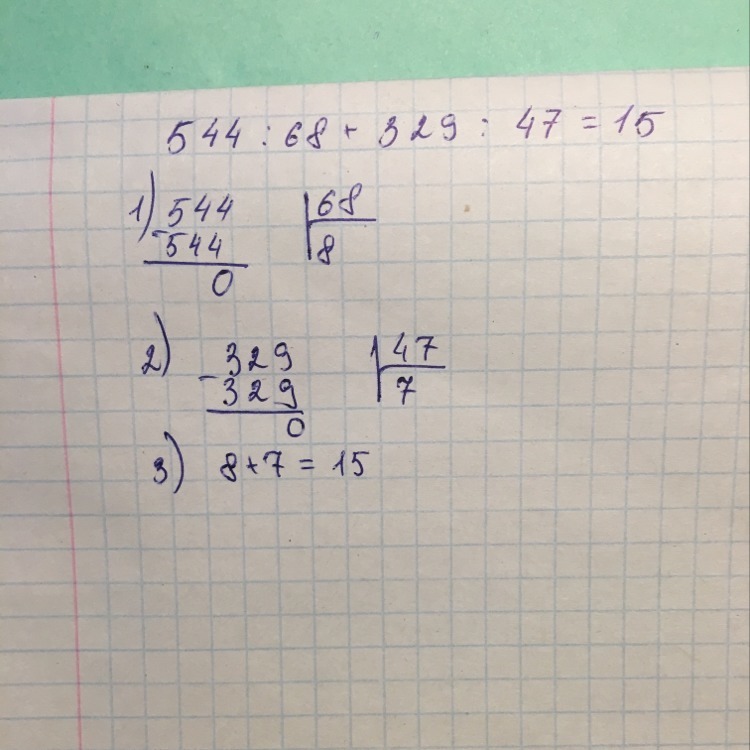 544 : 68 + 329 : 47 = 15
1) 544 | 68
- 544 | 8
0
2) 329 | 47
- 329 | 7
0
3) 8 + 7 = 15